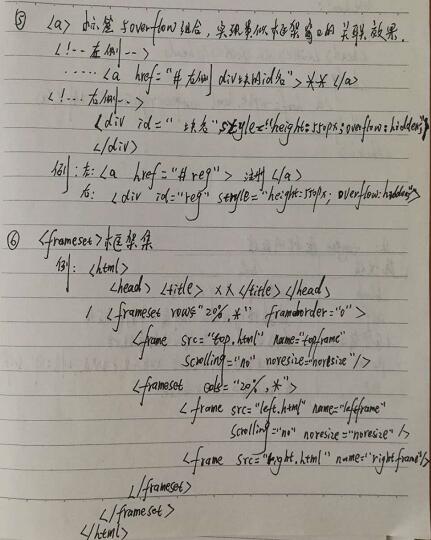 ⑤ <a> 标签与overflow组合,实现类似框架窗口的关联效果.
<!-- 左侧 -->
······ <a href="#右侧div块的id名"> ** </a>
<!-- 右侧 -->
<div id=" 块名" style="height:550px;overflow:hidden;">
</div>
例:左:<a href="#reg"> 注册 </a>
右:<div id="reg" style="height:550px; overflow:hidden;">
⑥ <frameset>框架集
例:<html>
<head> <title> ** </title> </head>
<frameset rows="20%,*" frameborder="0">
<frame src="top.html" name="topframe"
scrolling="no" noresize="noresize"/>
<frameset cols="20%,*">
<frame src="left.html" name="leftframe"
scrolling="no" noresize="noresize"/>
<frame src="right.html" name="rightframe"/>
</frameset>
</frameset>
</html>